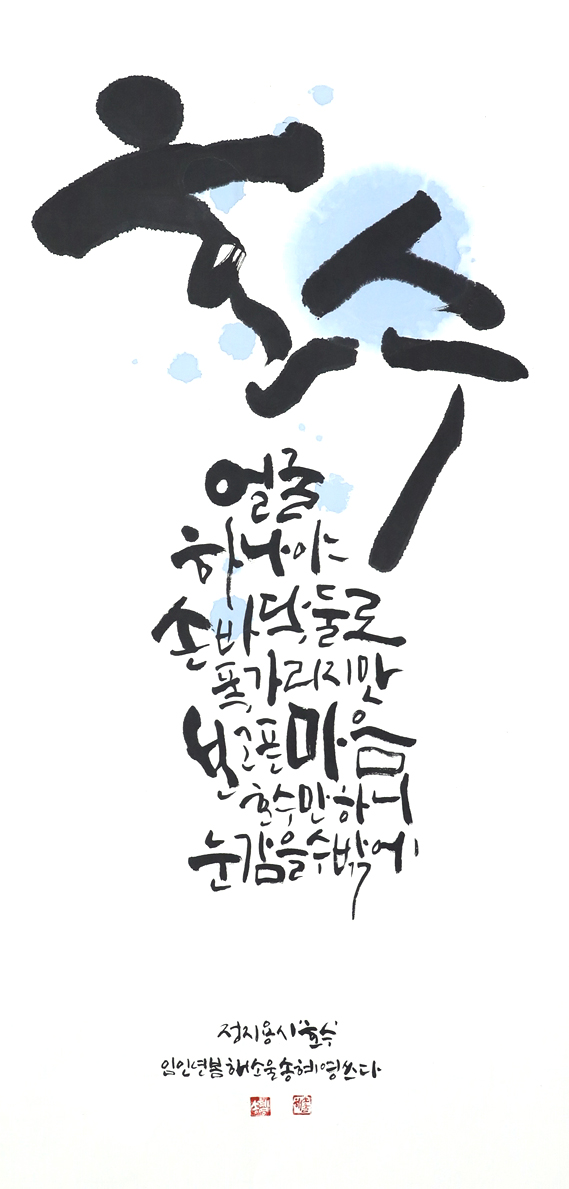 호수
얼굴
하나야
손바닥 둘로
폭 가리지만
보고픈 마음
호수만 하니
눈 감을 수 밖에
정지용 시 '호수'
임인년 봄 해소울 송혜영 쓰다